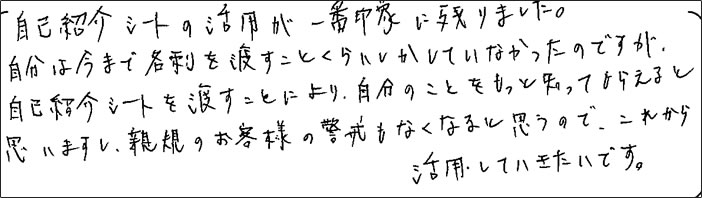 自己紹介シートの活用が一番印象に残りました。
自分は今まで名刺を渡すことくらいしかしていなかったのですが、
自己紹介シートを渡すことにより、自分のことをもっと知ってもらえると
思いますし、新規のお客様の警戒もなくなると思うので、これから
活用していきたいです。